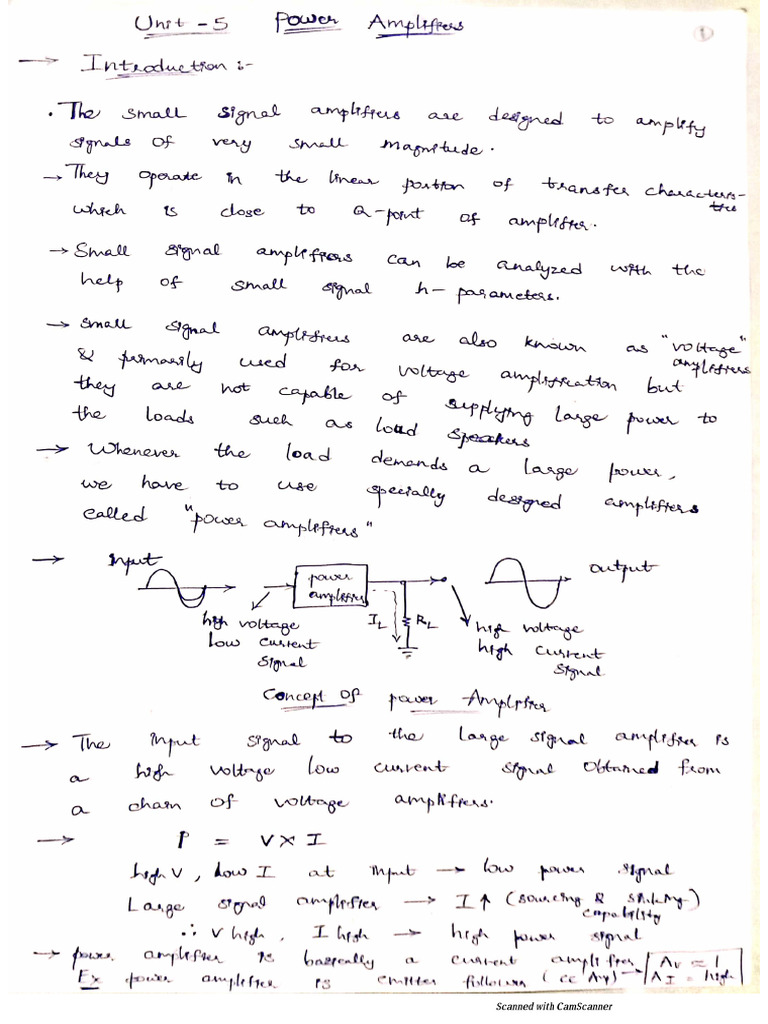 Unit - 5 Power Amplifiers
1
→ Introduction :-
. The small signal amplifiers are designed to amplify
signals of very small magnitude.
→ They operate in the linear portion of transfer characteris-
tics
which is close to Q-point of amplifier.
→ Small signal amplifiers can be analyzed with the
help of small signal h-parameters.
→ small signal amplifiers are also known as "voltage"
amplifiers
& primarily used for voltage amplification but
they are not capable of supplying large power to
the loads such as loud speakers
→ Whenever the load demands a large power,
we have to use specially designed amplifiers
called "power amplifiers"
→ Input
output
power
amplifier
high voltage
low current
signal
IL
RL
high voltage
high current
signal
Concept of power Amplifier
→ The input signal to the large signal amplifier is
a high voltage low current signal obtained from
a chain of voltage amplifiers.
→ P = V × I
high V, Low I at input → low power signal
Large signal amplifier → I↑ (sourcing & sinking)
capability
∴ V high, I high → high power signal
→ power amplifier is basically a current amplifier
Ex power amplifier is emitter follower (CC A/y) → Av ≈ 1
AI = high
Scanned with CamScanner